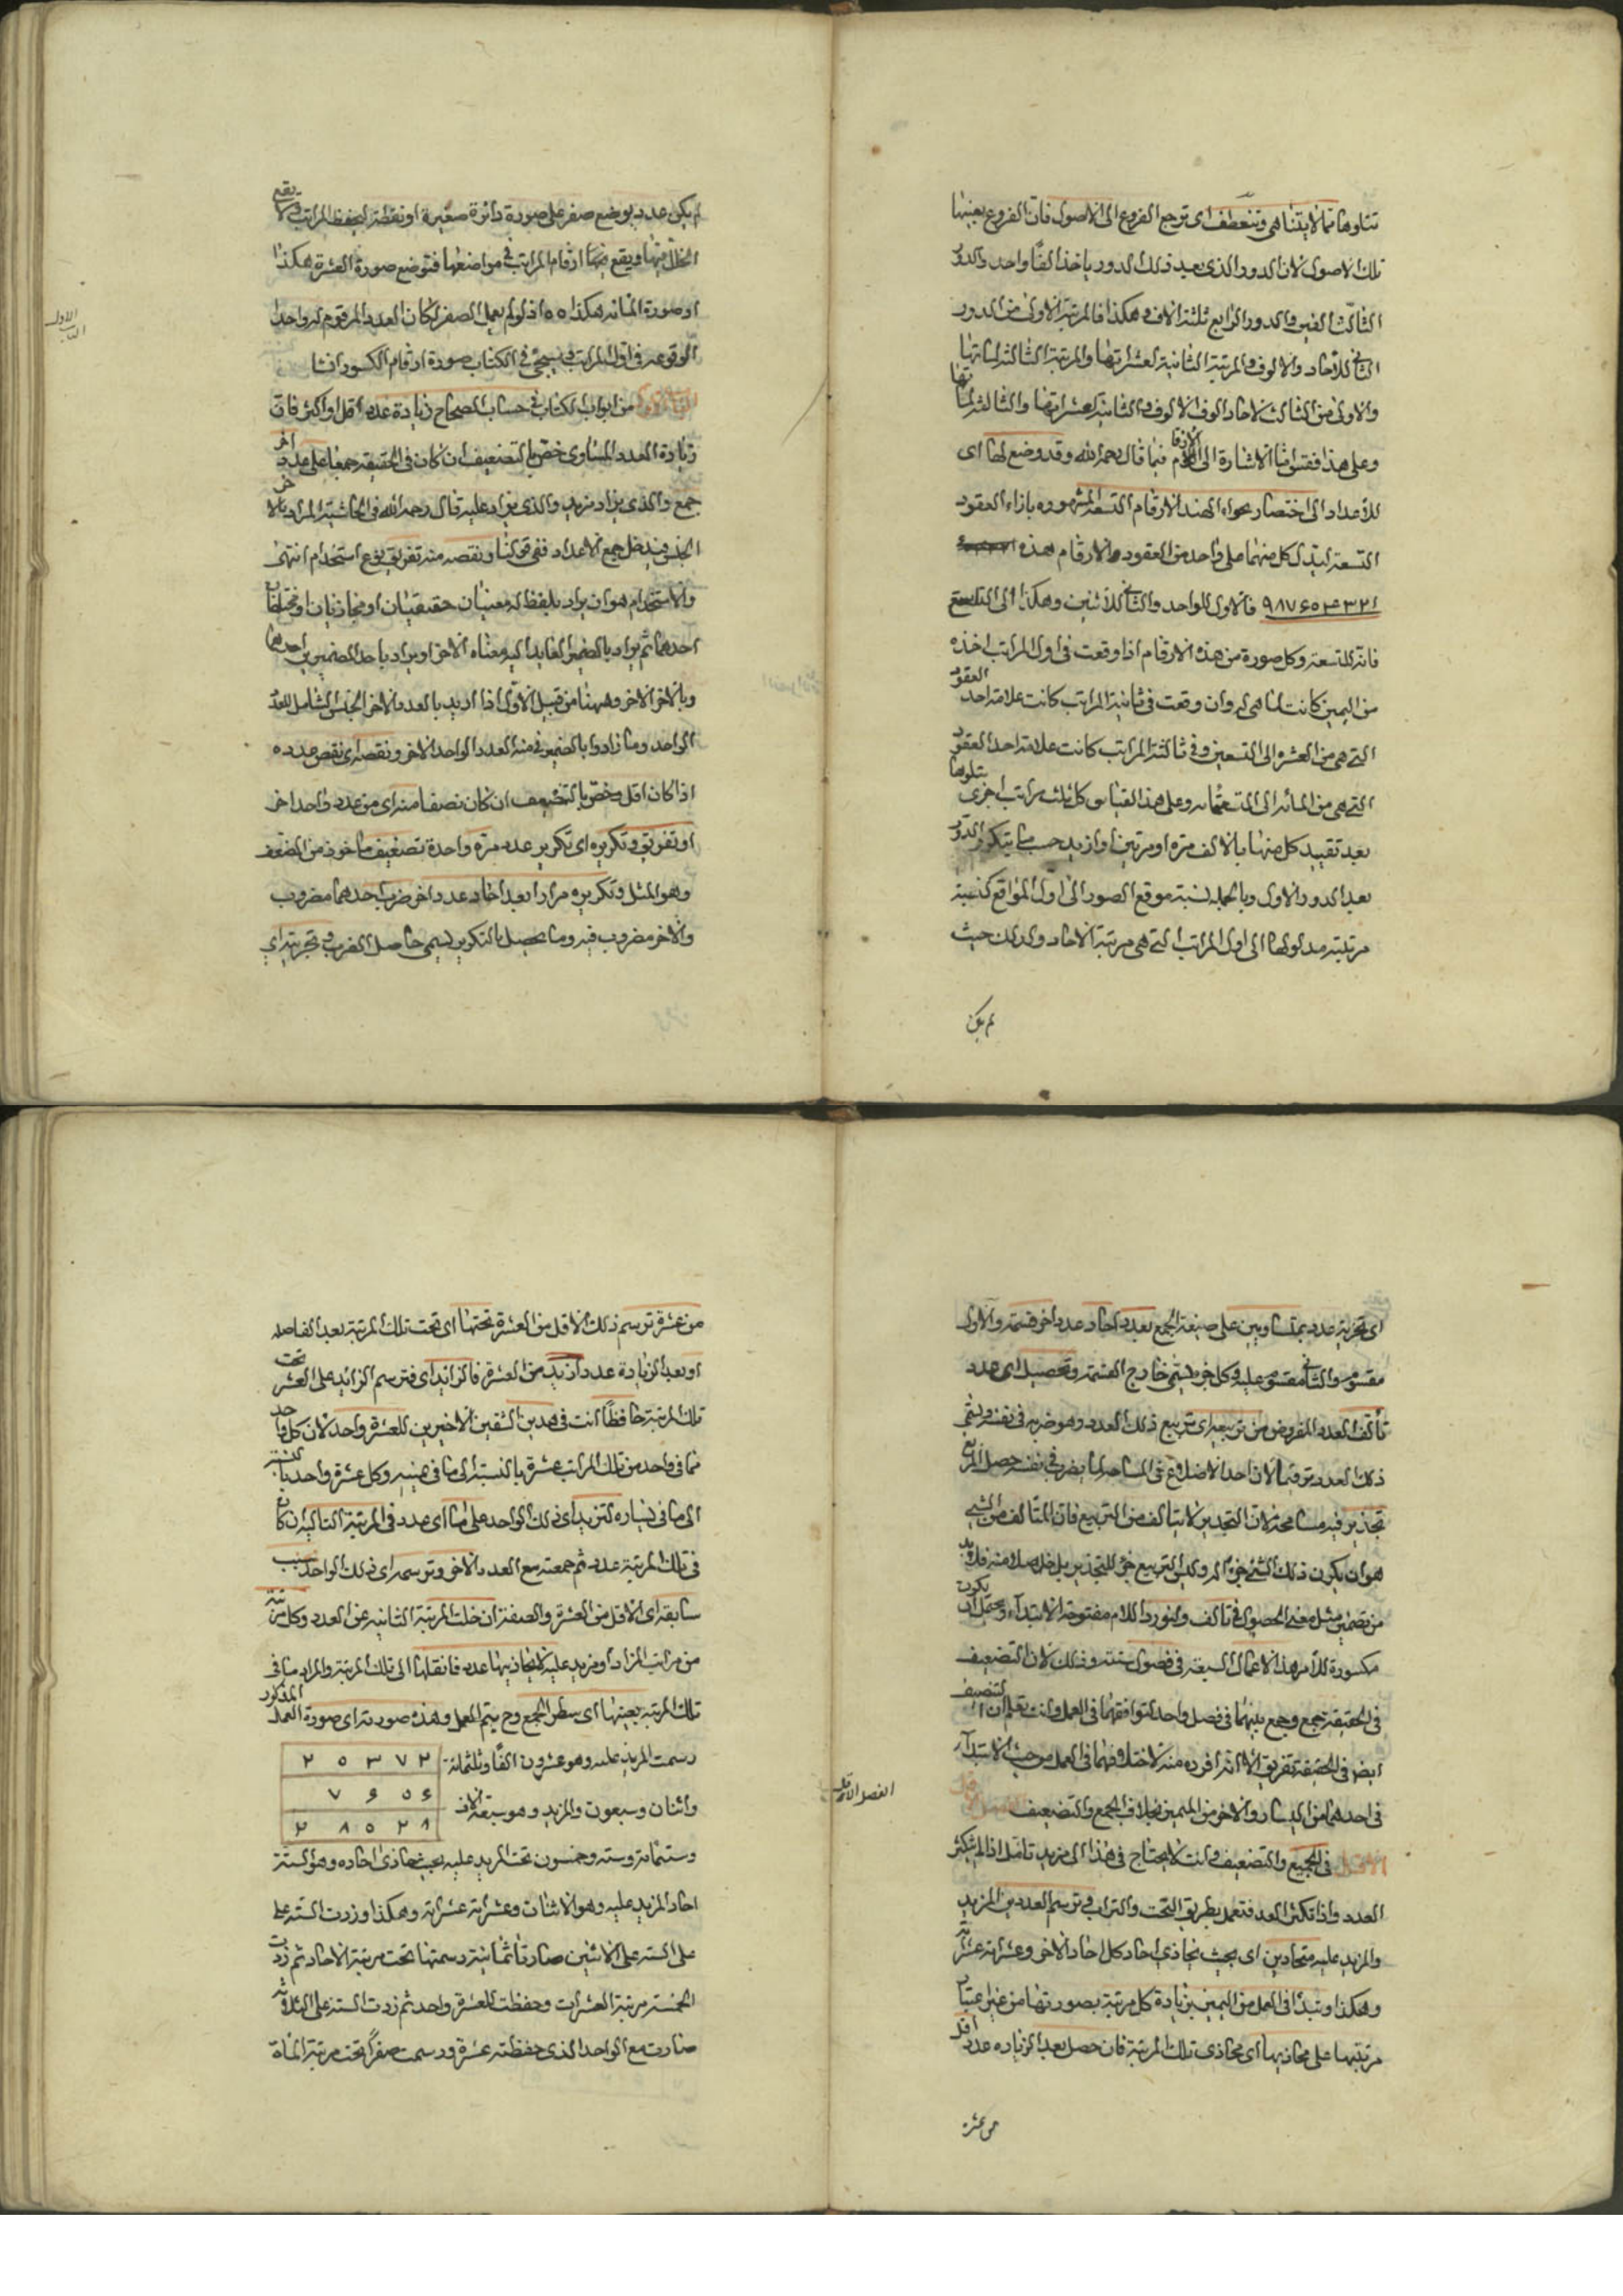 تناوها مما لا يتناهى وتنعطف اى ترجع الفروع الى الاصول فان الفروع بعينها
تلك الاصول لان الدور الذى بعيد ذلك الدور ياخذ الفا واحد والدور
الثالث الفين والدور الرابع ثلثة الاف وهكذا فالمرتبة الاولى من الدور
الثانى للآحاد والالوف والمرتبة الثانية لعشراتها والمرتبة الثالثة لمئاتها
والاولى من الثالث لاحاد الوف الالوف والثانية لعشراتها والثالثة لمئاتها
وعلى هذا فقس اما الاشارة الى الارقام فيما قال رحمه الله وقد وضع لها اى
للأعداد الى اختصار حواء الهند الارقام التسعة المشهورة بازاء العقود
التسعة ليدل كل منهما على واحد من العقود والارقام هذه
١ ٢ ٣ ۴ ٥ ۶ ٧ ٨ ٩ فالاول للواحد والثانى للاثنين وهكذا الى التاسع
فانه للتسعة وكل صورة من هذه الارقام اذا وقعت فى اول المراتب اخذه
من اليمين كانت لما هى له وان وقعت فى ثانية المراتب كانت علامة احد العقود
التى هى من العشرة الى التسعين وفى ثالثة المراتب كانت علامة احد العقود
التى هى من المائة الى التسعمائة وعلى هذا القياس كل ثلث مراتب اخرى يتلوها
بعد تقييد كل منها بالالف مرة او مرتين او ازيد حسب ما يتكرر الدور
بعد الدور الاول وبالجملة نسبة موقع الصور الى اول المواقع كنسبة
مرتبة مدلولها الى اول المراتب التى هى مرتبة الآحاد ولذلك حيث
لم يكن
لم يكن عدد يوضع صفر على صورة دائرة صغيرة او نقطة ليحفظ المراتب ولا يقع
الخلل فيها ويقع ارقام المراتب فى مواضعها فتوضع صورة العشرة هكذا
او صورة المائة هكذا ٥٥ اذ لو لم يعمل الصفر لكان العدد المرقوم له واحدا
لوقوعه فى اول المراتب وسيجئ فى الكتاب صورة ارقام الكسور انشا
من ابواب الكتاب فى حساب الصحاح زيادة عدد اقل او اكثر فان
زيادة العدد المساوى خص بالتضعيف ان كان فى الحقيقة جمعا على عدد آخر
جمع والذى يزاد مزيد والذى يزاد عليه قال رحمه الله فى الحاشية المراد بالآخر
الجنس فيدخل جمع الاعداد ففى قولنا ونقصه منه تفريق نوع استخدام انتهى
والاستخدام هو ان يراد بلفظ له معنيان حقيقيان او مجازيان او مختلفان
احدهما ثم يراد بالضمير العائد اليه معناه الآخر او يراد باحد الضميرين احدهما
وبالآخر الآخر وههنا من قبيل الاول اذا اريد بالعدد الآخر الجنس الشامل للعدد
الواحد وما زاد وبالضمير فى منه العدد الواحد الآخر ونقصه اى نقص عدده
اذا كان اقل وخص بالتنصيف ان كان نصفا منه اى من عدد واحد آخر
او تفريق وتكريره اى تكرير عدد مرة واحدة تضعيف ماخوذ من الضعف
وهو المثل وتكريره مرارا بعد آحاد عدد آخر ضرب احدهما مضروب
والآخر مضروب فيه وما يحصل بالتكرير يسمى حاصل الضرب وتجزئته اى
الاول
الباب
اى تجزية عدد بمتساويين على صيغة الجمع بعدد آحاد عدد آخر قسمة والاول
مقسوم والثانى مقسوم عليه وكل جزء يسمى خارج القسمة وتحصيل اى عدد
تألف العدد المفروض من تربيعه اى تربيع ذلك العدد وهو ضربه فى نفسه ويسمى
ذلك العدد مربعا لان احد الاضلاع فى المساحة لما يضرب فى نفسه حصل المربع
تجذير فيه مسامحة لان التجذير لا يتالف من التربيع فان المتالف من الشئ
هو ان يكون ذلك الشئ جزءا له وليس التربيع جزء للتجذير بل حاصلا منه فلابد
من تضمين مثل معنى الحصول فى تالف ولنورد اللام مفتوحة للابتداء ويحتمل ان يكون
مكسورة للأمر هذه الاعمال السبعة فى فصول ستة وذلك لان التضعيف
فى الحقيقة جمع وجمع بينهما فى فصل واحد لتوافقهما فى العمل وانت تعلم ان التنصيف
ايضا فى الحقيقة تفريق الا انه افرده منه لاختلافهما فى العمل من حيث الابتداء
فى احدهما من اليسار والآخر من اليمين بخلاف الجمع والتضعيف
الاول فى الجمع والتضعيف وانت لا يحتاج فى هذا الى مزيد تامل اذا لم يتكثر
العدد واذا تكثر العدد فتعمل بطريق التخت والتراب وترسم العددين المزيد
والمزيد عليه متحاذيين اى بحيث يحاذى آحاد كل آحاد الآخر وعشراته عشراته
وهكذا وتبدأ فى العمل من اليمين بزيادة كل مرتبة بصورتها من غير اعتبار
مرتبتها على محاذيها اى محاذى تلك المرتبة فان حصل بعد الزيادة عدد اقل
من عشرة
الفصل الاول
من عشرة ترسم ذلك الاقل من العشرة تحتها اى تحت تلك المرتبة بعد الفاصلة
او بعد الزيادة عدد ازيد من العشرة فالزائد اى فترسم الزائد على العشر تحت
تلك المرتبة حافظا انت فى هذين الشقين الاخيرين للعشرة واحد لان كل واحد
مما فى واحد من تلك المراتب عشرة بالنسبة الى ما فى يمينه وكل عشرة واحد بالنسبة
الى ما فى يساره لتزيد اى ذلك الواحد على ما اى عدد فى المرتبة التالية ان كان
فى تلك المرتبة عدد ثم جمعته مع العدد الآخر وترسمه اى ذلك الواحد بجنب
سابقه اى الاقل من العشرة والصفر ان خلت المرتبة الثانية عن العدد وكل مرتبة
من مراتب المزاد او مزيد عليه لا يحاذيها عدد فانقلها الى تلك المرتبة والمراد ما فى
تلك المرتبة بعينها اى سطر الجمع وح يتم العمل وهذه صورته اى صورة العمل المذكور
رسمت المزيد عليه وهو عشرون الفا وثلثمائة
٢ ٥ ٣ ٧ ٢
واثنان وسبعون والمزيد وهو سبعة الاف
٧ ۶ ٥ ۶
٢ ٨ ٥ ٢ ٨
وستمائة وستة وخمسون تحت المزيد عليه بحيث يحاذى آحاده وهو الستة
آحاد المزيد عليه وهو الاثنان وعشراته عشراته وهكذا وزدت الستة على
على الستة على الاثنين صارتا ثمانية رسمتها تحت مرتبة الآحاد ثم زدت
الخمسة مرتبة العشرات وحفظت للعشرة واحد ثم زدت الستة على الثلاثة
صارت مع الواحد الذى حفظته عشرة ورسمت صفرا تحت مرتبة المائة